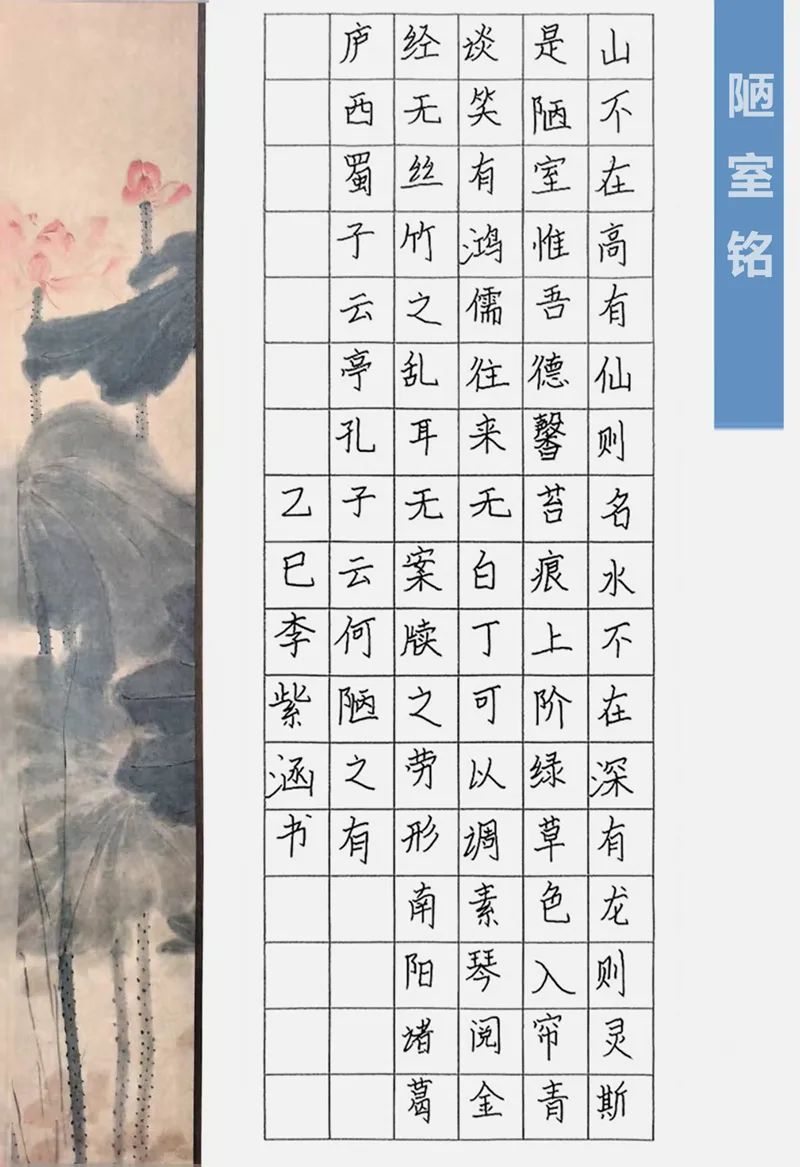 陋室铭
山不在高有仙则名水不在深有龙则灵斯
是陋室惟吾德馨苔痕上阶绿草色入帘青
谈笑有鸿儒往来无白丁可以调素琴阅金
经无丝竹之乱耳无案牍之劳形南阳诸葛
庐西蜀子云亭孔子云何陋之有
乙巳李紫涵书